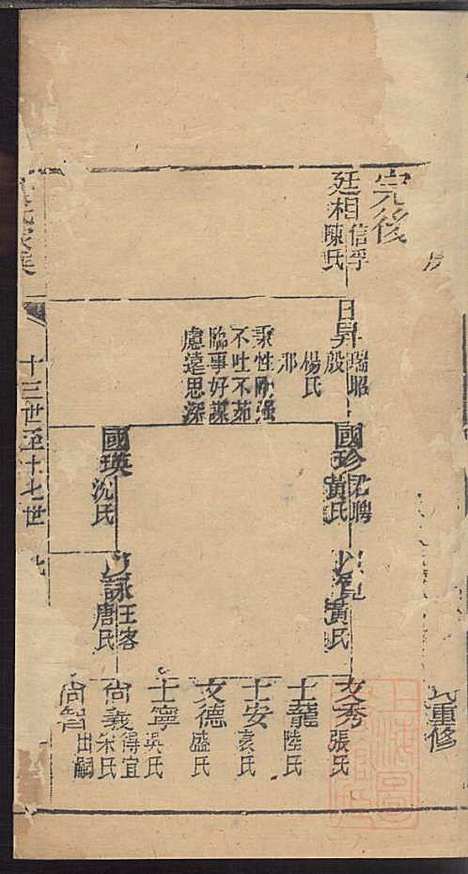 完後
廷相
信孚
陳氏
日昇
瑞昭
殷
楊氏
邢
秉性剛強
不吐不茹
臨事好謀
慮遠思深
國珍
黃氏
國瑛
沈氏
黃氏
詠
王客
唐氏
文秀
張氏
士龍
陸氏
士安
袁氏
文德
盛氏
士寧
吳氏
尚義
得宜
宋氏
尚智
出嗣
重修
十三世至十七世